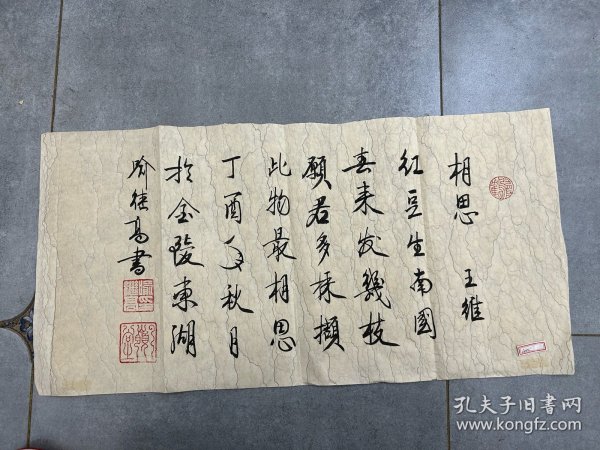 相思 王維
红豆生南國
春来发幾枝
願君多採擷
此物最相思
丁酉年秋月
於金陵東湖
喻继高書
孔夫子旧書网
www.kongfz.com